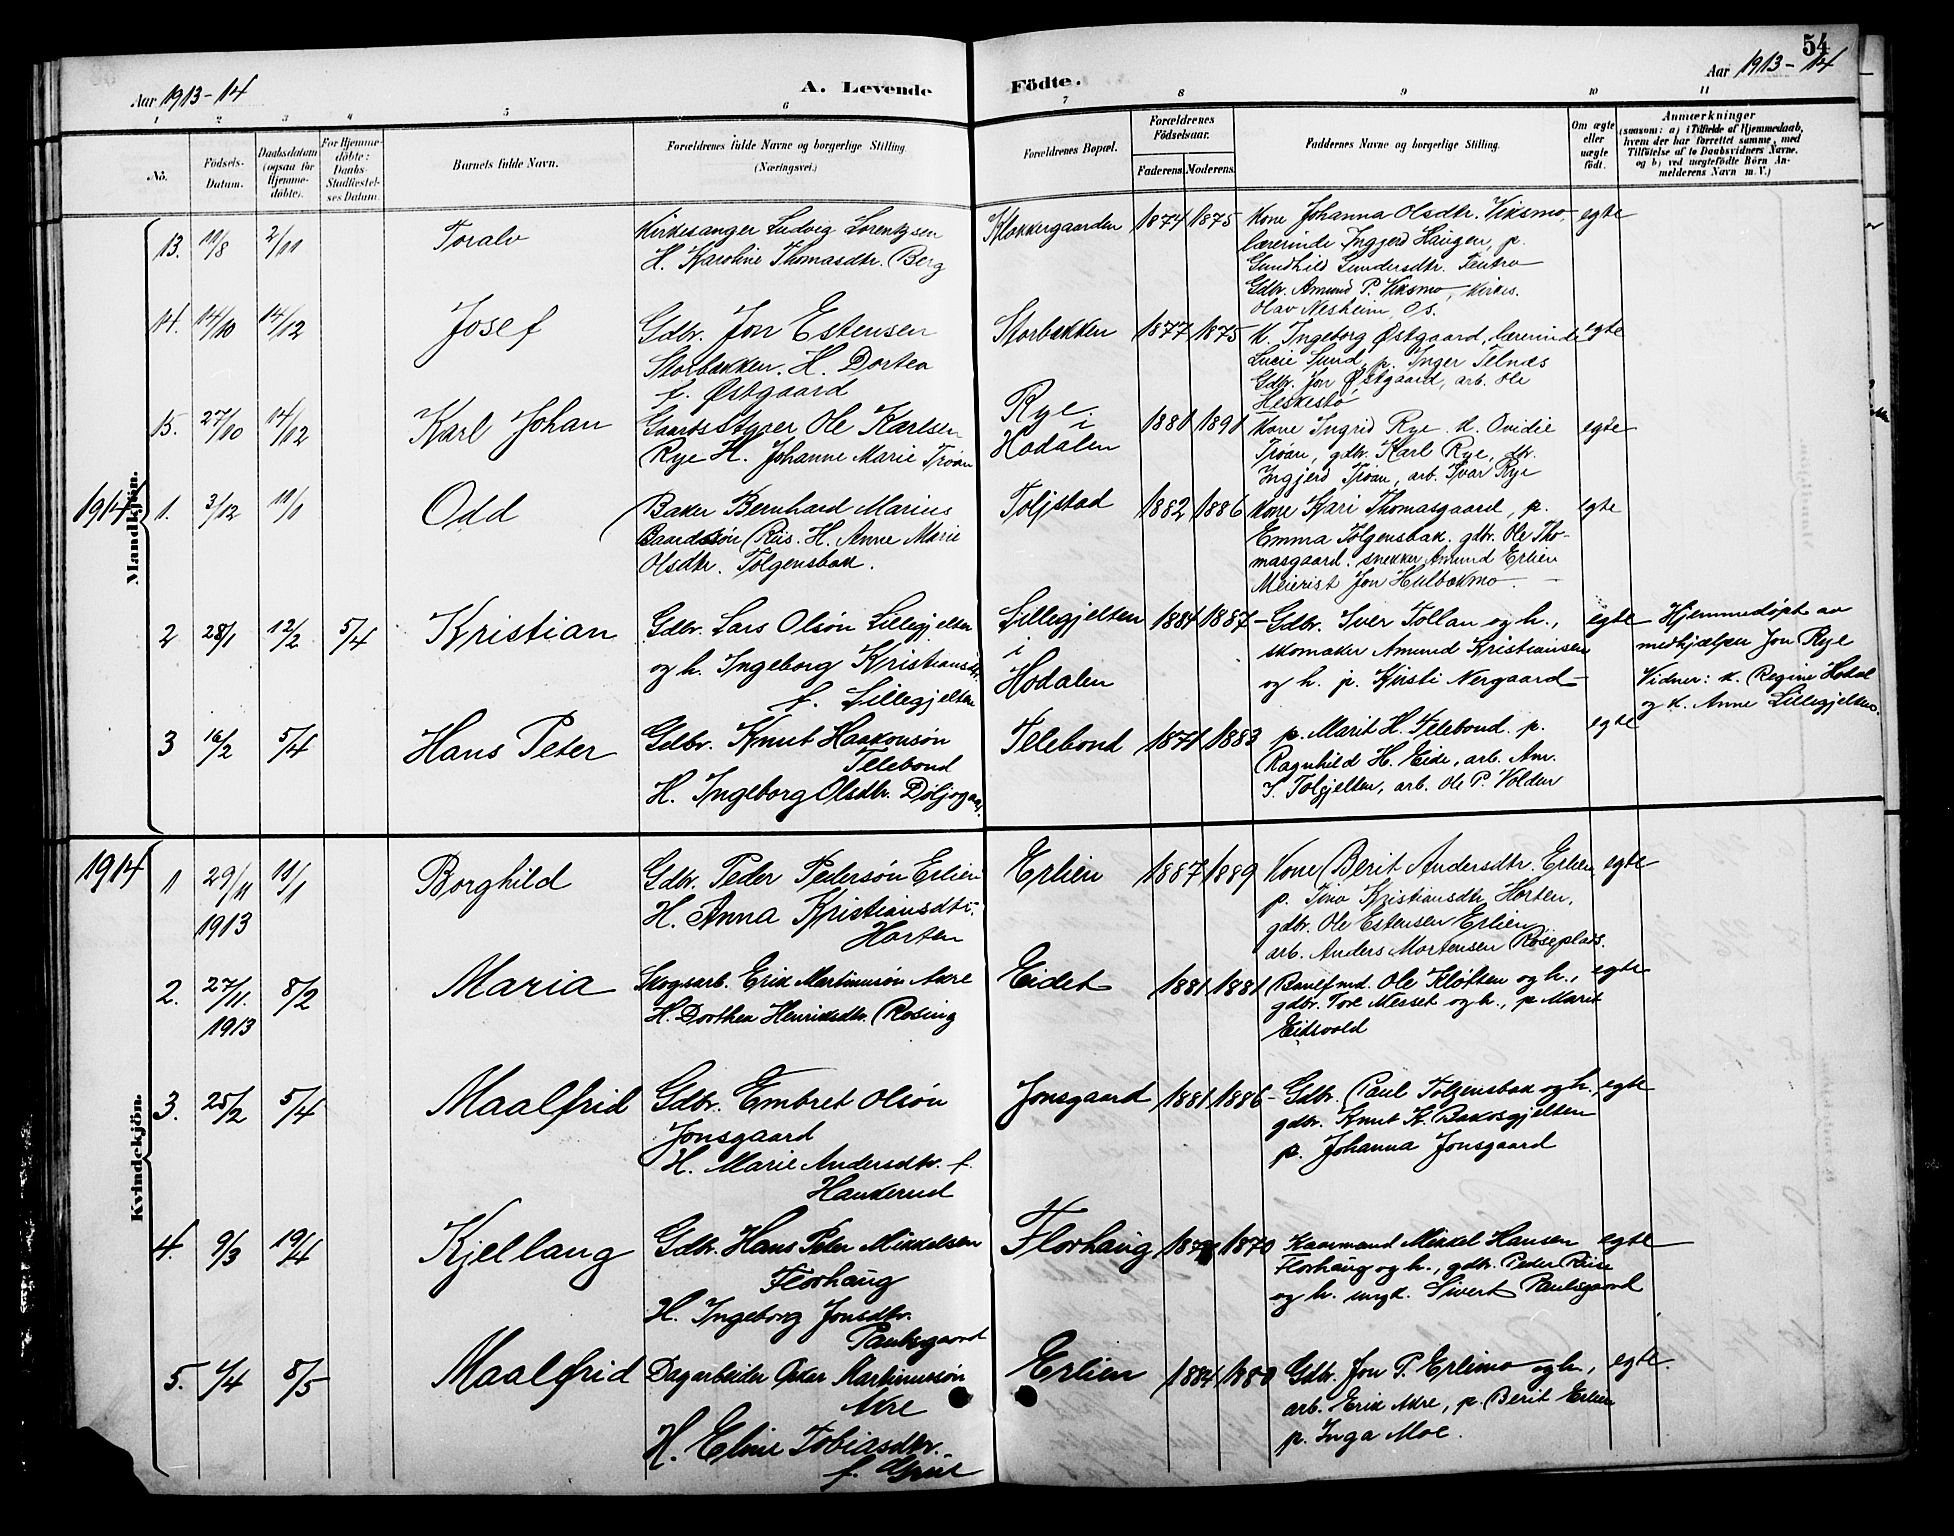 54
Aar 1913-14
A. Levende
Födte.
Aar 1913-14
1 2 3 4 5 6 7 8 9 10 11
No.
Födsels-
Datum.
Daabsdatum
(ogsaa for
Hjemme-
döbte).
For Hjemme-
döbte:
Daabs-
Stadfæstel-
ses Datum.
Barnets fulde Navn.
Forældrenes fulde Navne og borgerlige Stilling
(Næringsvei.)
Forældrenes Bopæl.
Forældrenes
Födselsaar.
Faderens. Moderens.
Faddernes Navne og borgerlige Stilling.
Om ægte
eller
uægte
födt.
Anmærkninger
(saasom: a) i Tilfælde af Hjemmedaab,
hvem der har forrettet samme, med
Tilföielse af to Daabsvidners Navne,
og b) ved uægtefödte Börn An-
melderens Navn m. V.)
Mandkjön.
13. 19/8 2/11 Toralv
Kirkesanger Ludvig Lorentzsen
H. Karoline Thomasdtr. Berg
Klokkergaarden 1874 1875
Kone Johanna Olsdtr. Viksmo,
lærerinde Ingjerd Haugen, p.
Gundhild Gundersdtr.
Gdbr. Amund P. Viksmo, Kirkes.
Olav Nesheim, Os.
egte
14. 14/10 14/12 Josef
Gdbr. Jon Estensen
Storbakken. H. Dortea
f. Østgaard
Storbakken 1877 1875
K. Ingeborg Østgaard, lærerinde
Lucie Lund, p. Inger Telnæs
Gdbr. Jon Østgaard, arb. Ole
egte
15. 27/10 14/12 Karl Johan
Gaardsstyrer Ole Karlsen
Rye H. Johanne Marie Trøan
Rye i
Hodalen
1881 1891
Kone Ingrid Rye K. Ovidie
Trøan, gdbr. Karl Rye,
Ingjerd Trøan, arb. Ivar Rye
egte
1914
1. 3/12 11/1 Odd
Baker Bernhard Marius
Baardssön Riis. H. Anne Marie
Olsdtr. Tolgensbak.
Toljstad 1882 1886
Kone Kari Thomasgaard, p.
Emma Tolgensbak. gdbr. Ole Tho-
masgaard. snekker Amund Erlien
Meierist Jon Hulbækmo
egte
2 28/1 12/2 5/4 Kristian
Gdbr. Lars Olsön Lillegjelten
og h. Ingeborg Kristiansdtr.
f. Lillegjelten
Lillegjelten
i
Hodalen
1884 1887
Gdbr. Iver Tollan og h.,
skomaker Amund Kristiansen
og h. p. Kirsti Nergaard
egte
Hjemmedøpt av
medhjælper Jon Rye
Vidner: K. Regine Hodal
og K. Anne Lillegjelten.
3 16/2 5/4 Hans Peter
Gdbr. Knut Haakonsön
Telebond
H. Ingeborg Olsdtr.
Telebond 1871 1883
p. Marit H. Telebond. p.
Ragnhild H. Eide, arb. Am.
J. Tolgjelten, arb. Ole P. Volden
egte
Kvindekjön.
1914
1 29/11 1913 11/1 Borghild
Gdbr. Peder Pedersön Erlien
H. Anna Kristiansdtr.
Horten
Erlien 1887 1889
Kone Berit Andersdtr. Erlien
p. Tina Kristiansdtr Horten,
gdbr. Ole Estensen Erlien
arb. Anders Mortensen Röseplads.
egte
2. 27/11. 1913 8/2 Maria
Skogsarb. Erik Martinusön Akre
H. Dorthea Henriksdtr. Rosing
Eidet 1881 1881
Banefmd. Ole Kløften og h.,
gdbr. Tore Nesset og h., p. Marit
Eidsvold
egte
3. 25/2 5/4 Maalfrid
Gdbr. Embret Olsön
Jonsgaard
H. Marie Andersdtr. f.
Hankerud
Jonsgaard 1881 1886
Gdbr. Paul Tolgensbak og h.,
gdbr. Knut K. Bakosgjelten
p. Johanna Jonsgaard
egte
4. 9/3 19/4 Kjellaug
Gdbr. Hans Peter Mikkelsen
Florhaug
H. Ingeborg Jonsdtr.
Paulsgaard
Florhaug 1870
Kaarmand Mikkel Hansen
Florhaug og h., gdbr. Peder Riise
og h. ungk. Sivert Paulsgaard
egte
5. 1/4 8/5 Maalfrid
Dagarbeider Oskar Martinussön
Akre
H. Eline Tobiasdtr.
Erlien 1884 1880
Gdbr. Jon P. Erlimo og h.,
arb. Erik Akre, p. Berit Erlien
p. Inga Moe.
egte.